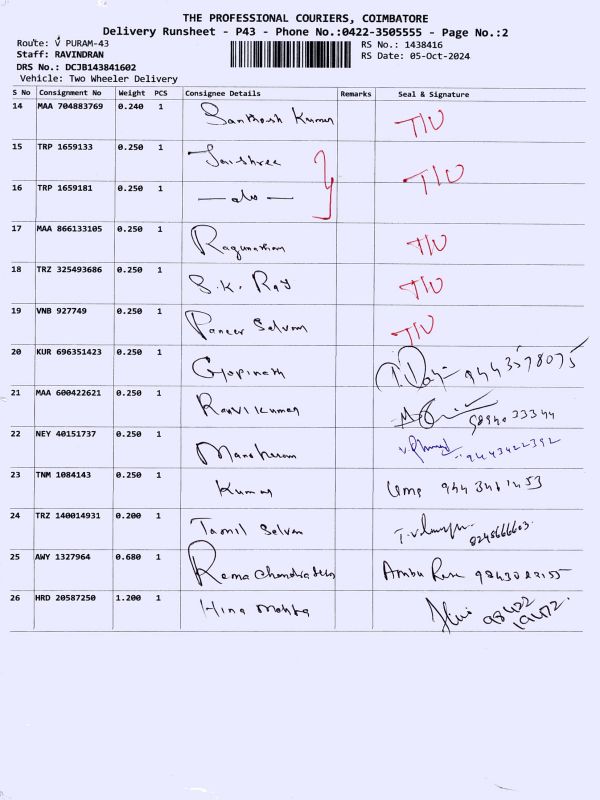 THE PROFESSIONAL COURIERS, COIMBATORE
Delivery Runsheet - P43 - Phone No.:0422-3505555 - Page No.:2
Route: V PURAM-43 RS No.: 1438416
Staff: RAVINDRAN RS Date: 05-Oct-2024
DRS No.: DCJB143841602
Vehicle: Two Wheeler Delivery
S No Consignment No Weight PCS Consignee Details Remarks Seal & Signature
14 MAA 704883769 0.240 1 Santhosh Kumar T/U
15 TRP 1659133 0.250 1 Jaishree
16 TRP 1659181 0.250 1 — do — T/U
17 MAA 866133105 0.250 1 Ragunathan T/U
18 TRZ 325493686 0.250 1 S.K. Raj T/U
19 VNB 927749 0.250 1 Paneer Selvam T/U
20 KUR 696351423 0.250 1 Gopinath 9443578075
21 MAA 600422621 0.250 1 Ravi Kumar 9894033344
22 NEY 40151737 0.250 1 Manoharan 9443422392
23 TNM 1084143 0.250 1 Kumar Uma 944 3461453
24 TRZ 140014931 0.200 1 Tamil Selvan 8248666603
25 AWY 1327964 0.680 1 Rama Chandran
26 HRD 20587250 1.200 1 Hina Mehta